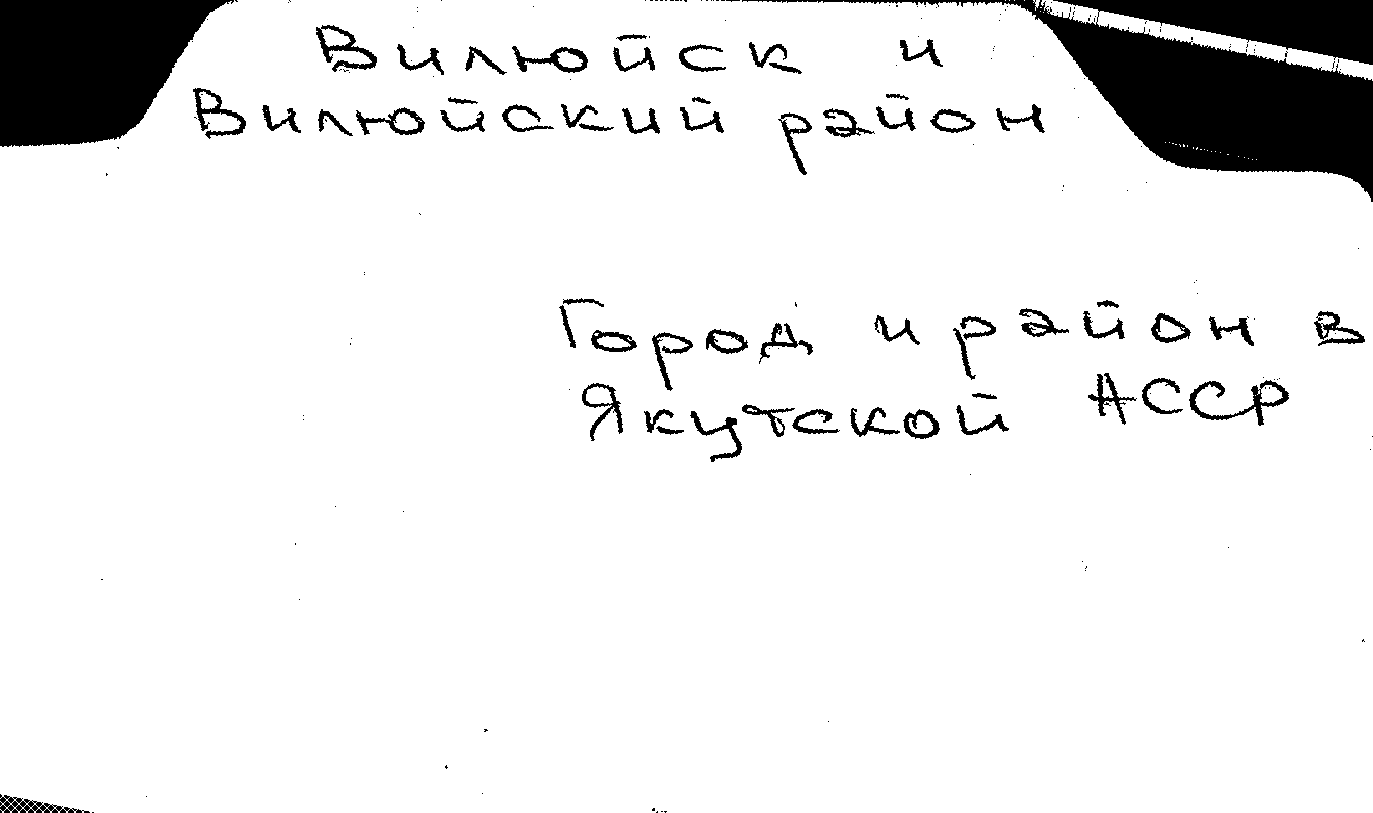 Вилюйск и
Вилюйский район
Город и район в
Якутской АССР